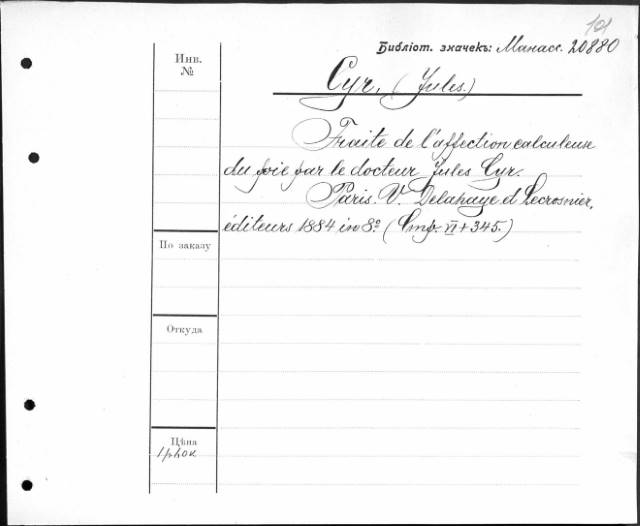 101
Библіот. значекъ: Манасс. 20880
Инв.
№
Cyr, (Jules.)
Traite de l'affection calculeuse
du foie par le docteur Jules Cyr.
Paris. V. Delahaye et Lecrosnier,
éditeurs 1884 in 8º. (Стр. VI + 345.)
По заказу
Откуда
Цѣна
1р 40к